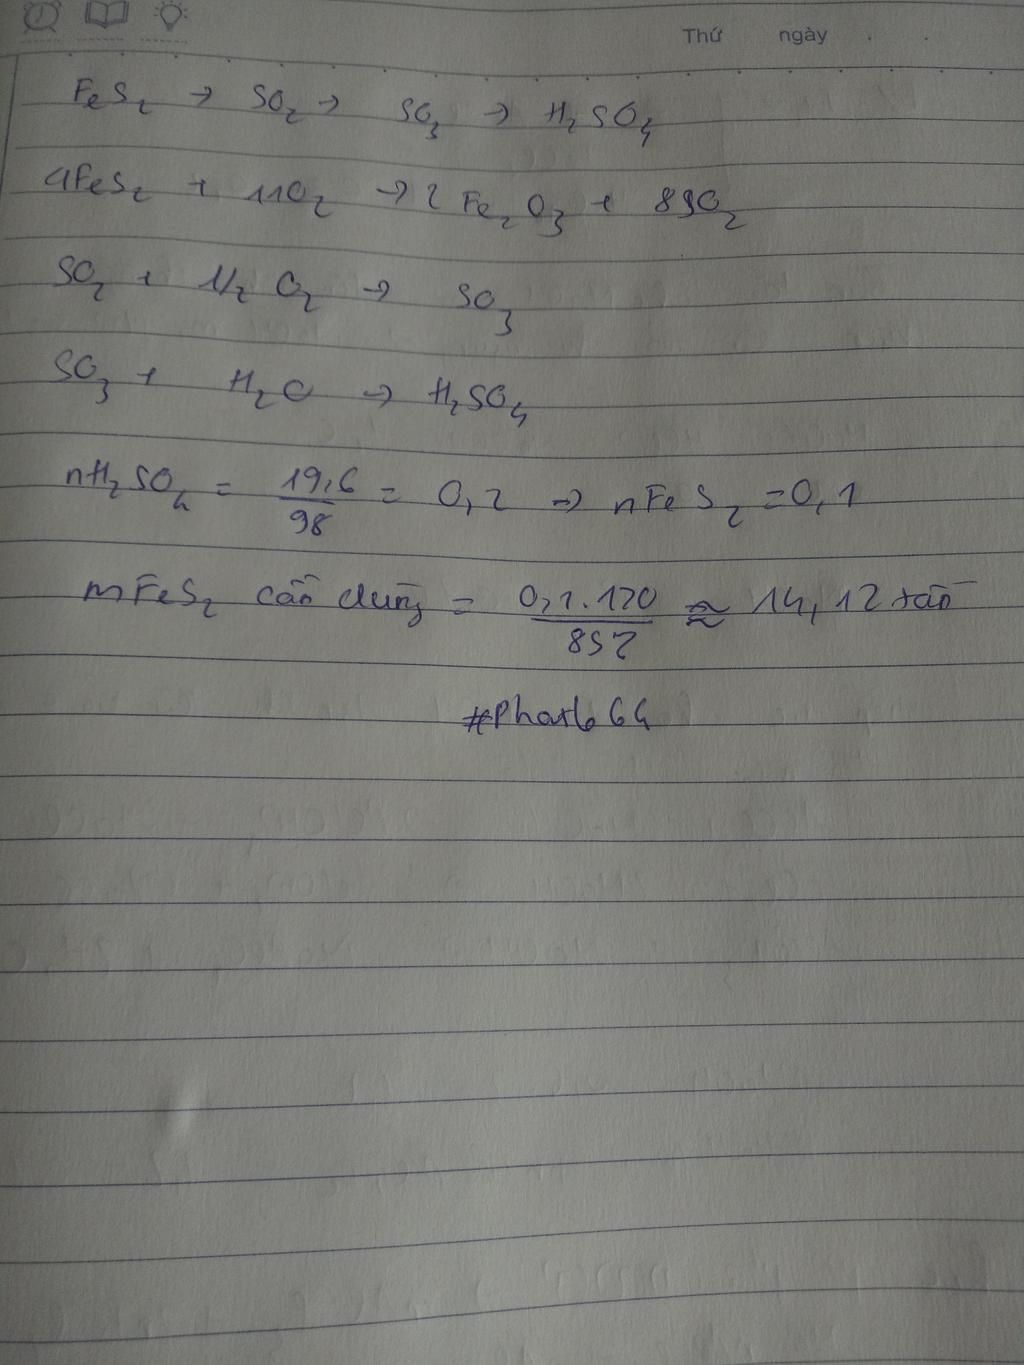 Thứ ngày . .
FeS₂ → SO₂ → SO₃ → H₂SO₄
4FeS₂ + 11O₂ → 2Fe₂O₃ + 8SO₂
SO₂ + 1/2 O₂ → SO₃
SO₃ + H₂O → H₂SO₄
nH₂SO₄ = 19,6/98 = 0,2 => nFeS₂ = 0,1
mFeS₂ cần dùng = 0,1.120/85% ≈ 14,12 tấn
#Phat664